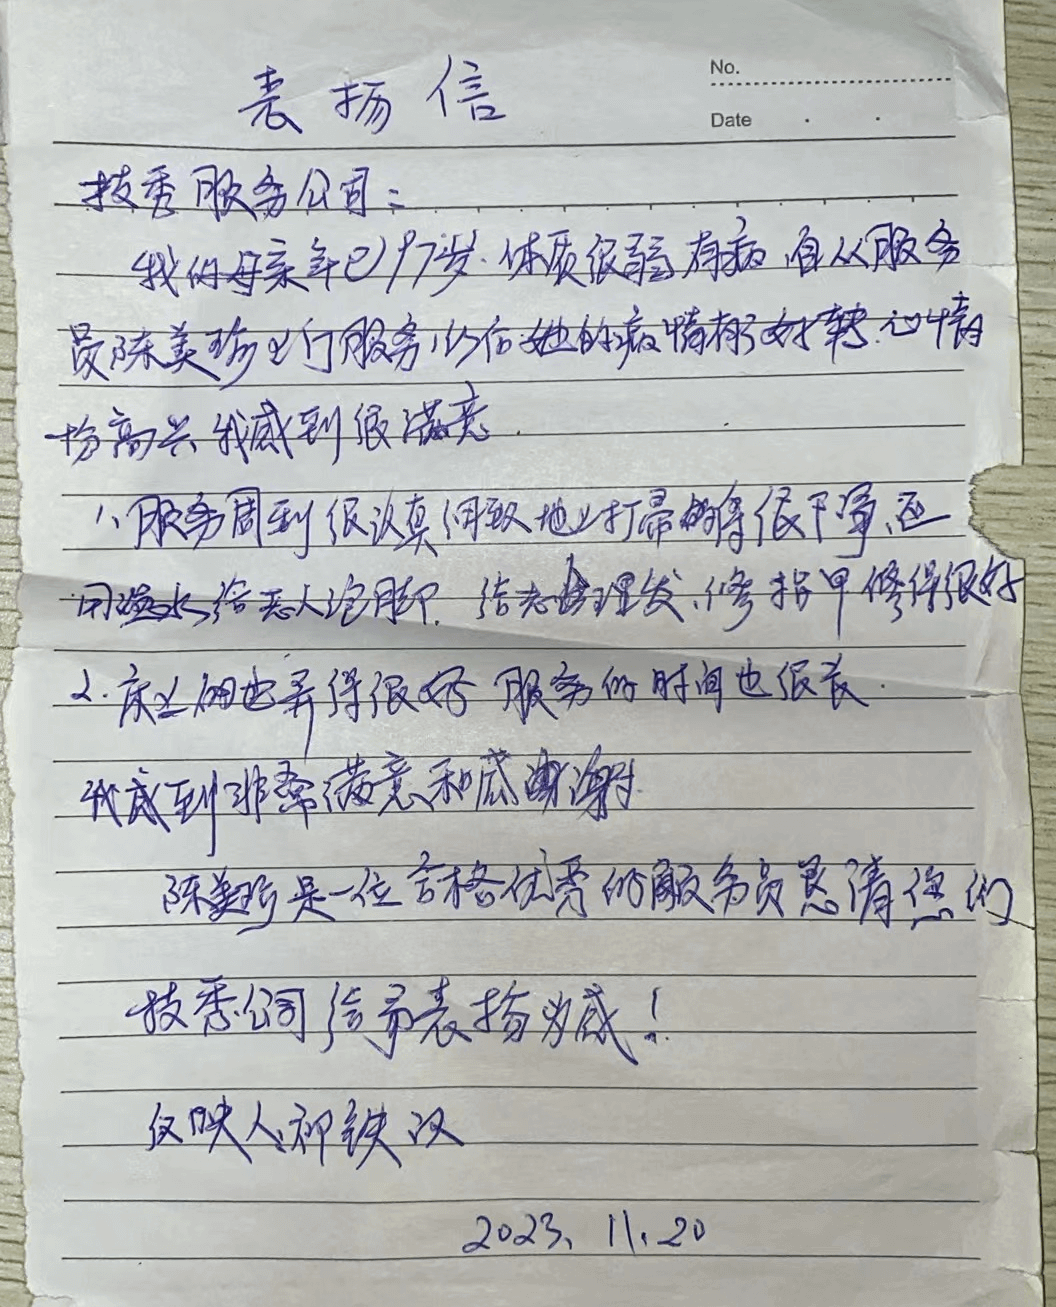 表扬信
No.
Date
技秀服务公司：
我的母亲年已97岁.体质很弱有病,自从服务
员陈美珍上门服务以后她的病情都好转.心情
扮高兴我感到很满意.
1、服务周到很认真细致地上打扫的得很干净、还
用温水给老人泡脚.给老人理发、修指甲修得很好
2.床上佣也弄得很好 服务的时间也很长.
我感到非常满意和感谢
陈美珍是一位合格优秀的服务员恳请您们
技秀公司给予表扬为感！
反映人:祁铁汉
2023、11.20